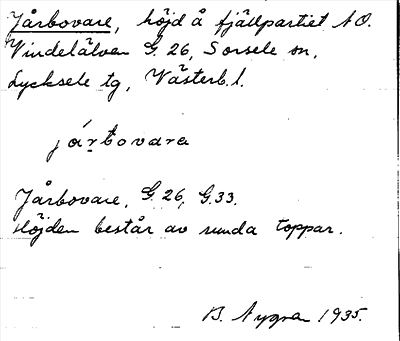 Jårbovare, höjd å fjällpartiet N.O.
Vindelälven G. 26, Sorsele sn,
Lycksele tg, Västerb. l.
járbovara
Jårbovare, G. 26, G.33.
Höjden består av runda toppar.
B. Nygren 1935.